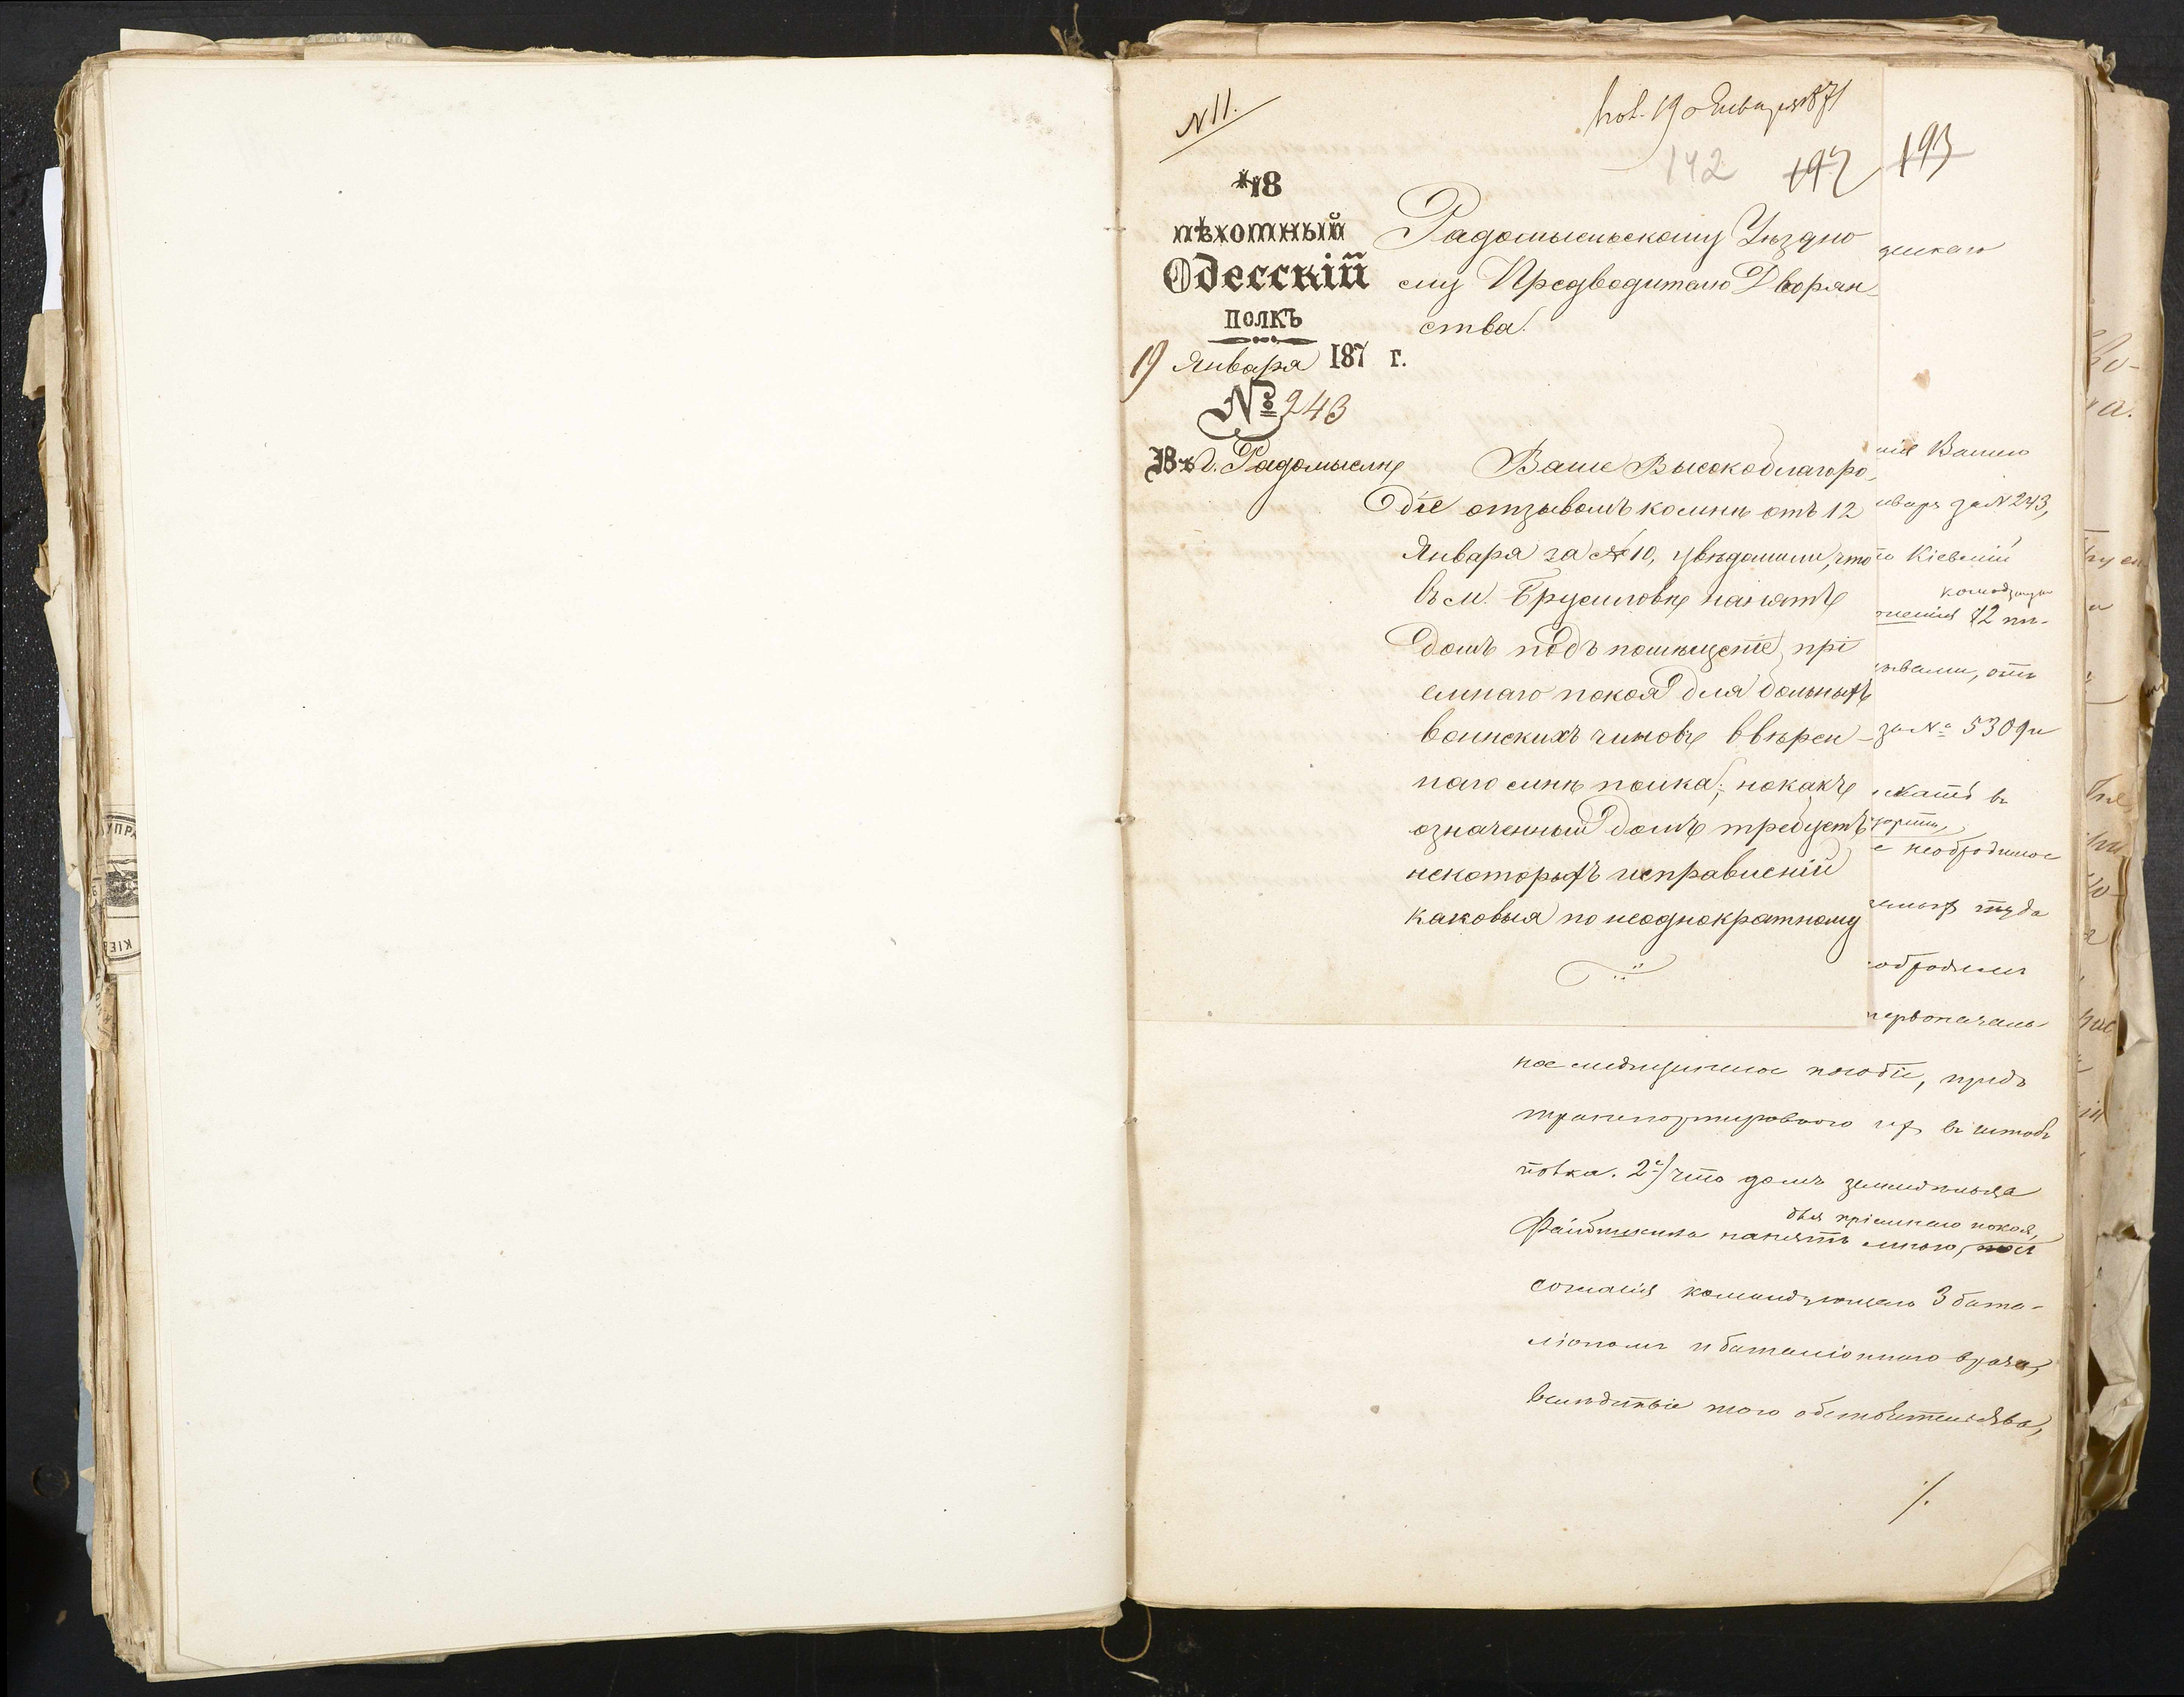 N 11.
19 Января 1871
142 197 193
48
пѣхотный
Одесскій
полкъ
19 Января 187 г.
№ 243
Въ г. Радомыслѣ
Радомысльскому Уѣздно
му Предводителю Дворян-
ства.
Ваше Высокоблагоро-
діе отзывомъ ко мнѣ отъ 12
Января за № 10, увѣдомили, что
въ м. Брусиловѣ нанятъ
домъ подъ помѣщеніе прі
емнаго покоя для больныхъ
воинскихъ чиновъ ввѣрен-
наго мнѣ полка; но какъ
означенный домъ требуетъ
некоторыхъ исправленій
каковыя по неоднократному
нія Вашего
нваря за N 243,
о Кіевскій
за № 5309 и
е необходимое
туда
первоначаль-
ное медицинское пособіе, предъ
транспортировкою ихъ въ штабъ
полка. 2е) что домъ
для пріемнаго покоя,
нанятъ мною,
согласія командующаго 3 бата-
ліономъ и баталіоннаго врача,
вслѣдствіе того обстоятельства,
/.